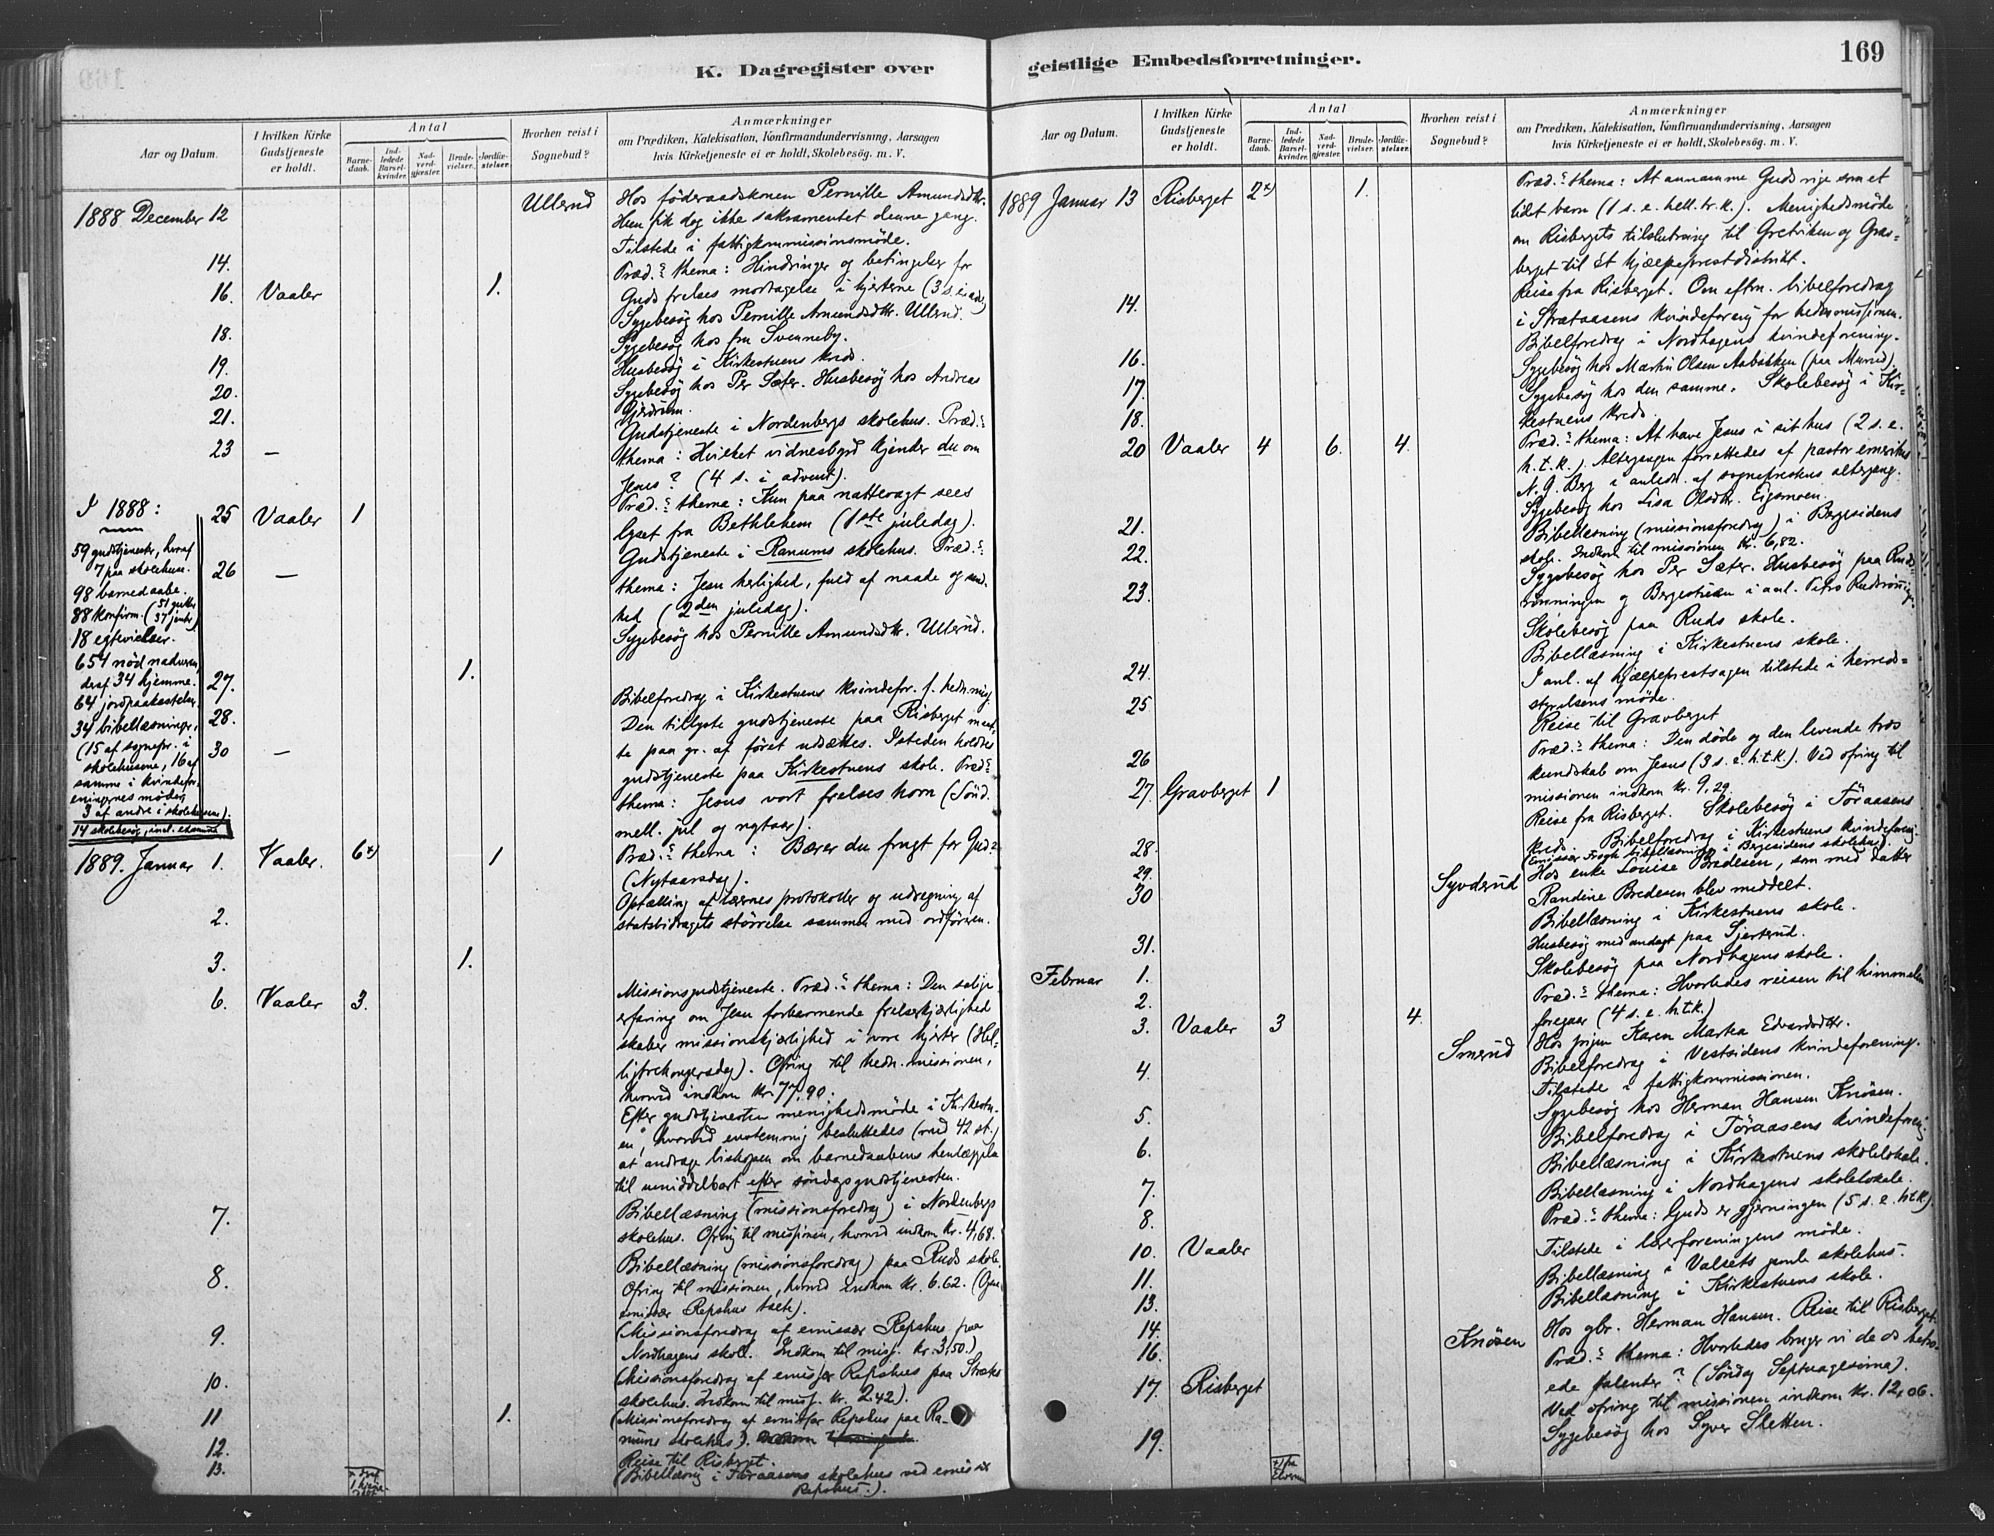 K. Dagregister over
Aar og Datum.
I hvilken Kirke Gudstjeneste er holdt.
Antal
Barne-daab.
Ind-ledede Barsel-kvinder.
Nad-verd-gjæster.
Brude-vielser.
Jordfæ-stelser.
Hvorhen reist i Sognebud?
Anmærkninger
om Prædiken, Katekisation, Konfirmandundervisning, Aarsagen
hvis Kirketjeneste ei er holdt, Skolebesög. m. V.
1888 December 12
Ullerud
Hos föderaadskonen Pernille Amundsdtr.
Hun fik dog ikke sakramentet denne gang.
14.
Tilstede i fattigkommissionsmöde.
16. Vaaler 1.
Præd.s thema: Hindringer og betingelser for
Guds frelses modtagelse i hjerterne (3 s. i adv.)
18.
Sygebesög hos Pernille Amundsdtr. Ullerud.
19.
Sygebesög hos fru Svenneby.
20.
Husbesög i Kirkestuens kreds.
21.
Sygebesög hos Per Sæter. Husbesög hos Andreas
Gjerdrum.
23 —
Gudstjeneste i Nordenbergs skolehus. Præd.s
thema: Hvilket vidnesbyrd kjender du om
Jesus? (4 s. i advent).
25 Vaaler 1
Præd.s thema: Kun paa nattevagt sees
lyset fra Bethlehem (1ste juledag).
26 —
Gudstjeneste i Ranums skolehus. Præd.s
thema: Jesu herlighed, fuld af naade og sand-
hed (2den juledag).
Sygebesög hos Pernille Amundsdtr. Ullerud.
I 1888:
59 gudstjenester, heraf
7 paa skolehuse.
98 barnedaabe.
88 konfirm. (51 gutter 37 jenter)
18 egtevielser.
654 nöd nadveren,
deraf 34 hjemme.
64 jordpaakastelser
34 bibellæsninger,
(15 af sognepr. i
skolehusene, 16 af
samme i kvindefor-
eningernes möder,
3 af andre i skolehusene).
14 skolebesög, incl. eksamen
27. 1.
28.
Bibelforedrag i Kirkestuens kvindefor. f. hedn.mis.
30 —
Den tillyste gudstjeneste paa Risberget maat-
te paa gr. af föret udsættes. Isteden holdtes
gudstjeneste paa Kirkestuens skole. Præd.s
thema: Jesus vort frelses horn (Sönd.
mell. jul og nytaar).
1889. Januar 1. Vaaler. 6x) 1
Præd.s thema: Bærer du frugt for Gud?
(Nytaarsdag).
2.
Optælling af lærernes protokoller og udregning af
statsbidragets störrelse sammen med ordföreren.
3. 1.
6. Vaaler 3.
Missionsgudstjeneste. Præd.s thema: Den salige
erfaring om Jesu forbarmende frelserkjærlighed
skaber missionskjærlighed i vore hjerter (Hel-
ligtrekongersdag). Ofring til hedn. missionen,
hvorved indkom kr. 77,90:
Efter gudstjenesten menighedsmöde i Kirkestu-
en, hvorved enstemmig besluttedes (med 42 st.)
at andrage biskopen om barnedaabens henlæggelse
til umiddelbart efter söndagsgudstjenesten.
7.
Bibellæsning (missionsforedrag) i Nordenbergs
skolehus. Ofring til missionen, hvorved indkom kr. 4,68.
8.
Bibellæsning (missionsforedrag) paa Ruds skole.
Ofring til missionen, hvorved indkom kr. 6.62. (Ogsaa
emissær Repshus talte).
9.
(Missionsforedrag af emissær Repshus paa
Nordhagens skoll. Indkom til miss. kr. 3,50.)
10.
(Missionsforedrag af emissær Repshus paa Stræte
skolehus. Indkom til miss. kr. 2.42).
11 1.
(Missionsforedrag af emissær Repshus paa Ra-
nums skolehus).
12.
Reise til Risberget.
13.
(Bibellæsning i Föraasens skolehus ved emissær
Repshus.).
geistlige Embedsforretninger.
169
Aar og Datum.
I hvilken Kirke Gudstjeneste er holdt.
Antal
Barne-daab.
Ind-ledede Barsel-kvinder.
Nad-verd-gjæster.
Brude-vielser.
Jordfæ-stelser.
Hvorhen reist i Sognebud?
Anmærkninger
om Prædiken, Katekisation, Konfirmandundervisning, Aarsagen
hvis Kirketjeneste ei er holdt, Skolebesög. m. V.
1889 Januar 13 Risberget 2x) 1.
Præd.s thema: At annamme Guds rige som et
lidet barn (1 s. e. hell. tr. k.). Menighedsmöde
om Risbergets tilslutning til Gretviken og Grav-
berget til ét hjælpeprestdistrikt.
14.
Reise fra Risberget. Om eftm. bibelforedrag
i Strætaasens kvindeforenig for hedn.missionen.
16.
Bibelforedrag i Nordhagens kvindeforening.
17.
Sygebesög hos Martin Olsen Aabakken (paa Marud).
18.
Sygebesög hos den samme. Skolebesög i Kir-
kestuens kreds.
20 Vaaler 4 6. 4.
Præd.s thema: At have Jesus i sit hus (2 s. e.
h.t.k.). Altergangen forrettedes af pastor emeritus
N. J. Berg i anledn. af sogneprestens altergang.
21.
Sygebesög hos Lisa Olsdtr. Eigsmoen.
22.
Bibellæsning (missionsforedrag) i Bergesidens
skole. Indkom til missionen kr. 6,82.
23.
Sygebesög hos Per Sæter. Husbesög paa Ruds-
rönningen og Bergestuen i anl. Petro Rudsrönning.
Skolebesög paa Ruds skole.
24.
Bibellæsning i Kirkestuens skole.
25
I anl. af hjælpeprestsagen tilstede i herreds-
styrelsens möde.
26
Reise til Gravberget
27. Gravberget 1
Præd.s thema: Den döde og den levende tros
kundskab om Jesus (3 s. e. h.t.k.). Ved ofring til
missionen indkom kr. 9,29.
28.
Reise fra Risberget. Skolebesög i Föraasens
kreds. Bibelforedrag i Kirkestuens kvindeforenig.
29.
(Emissær Frogh bibellæsning i Bergesidens skolehus).
30 Syvderud
Hos enke Louise Bredesen, som med datter
Randine Bredesen blev meddelt.
31.
Bibellæsning i Kirkestuens skole.
Februar 1.
Husbesög med andagt paa Sjerterud.
2.
Skolebesög paa Nordhagens skole.
3. Vaaler 3 4.
Præd.s thema: Hvorledes reisen til himmelen
foregaar (4 s. e. h.t.k.)
Smerud
Hos pigen Karen Martea Edvardsdtr.
4.
Bibelforedrag i Vestsidens kvindeforening.
Tilstede i fattigkommissionen.
5.
Sygebesög hos Herman Hansen Knösen.
6.
Bibelforedrag i Föraasens kvindeforenig.
7.
Bibellæsning i Kirkestuens skolelokale.
8.
Bibellæsning i Nordhagens skolelokale.
10. Vaaler
Præd.s thema: Guds er gjerningen (5 s. e. h.t.k).
11.
Tilstede i lærerforeningens möde.
13.
Bibellæsning i Valsets gamle skolehus.
14.
Bibellæsning i Kirkestuens skole.
16. Knösen
Hos gbr. Herman Hansen. Reise til Risberget.
17. Risberget
Præd.s thema: Hvorledes bruger vi de os betro-
ede talenter? (Söndag Septuagesima).
Ved ofring til missionen indkom kr. 12,06.
19.
Sygebesög hos Syver Sletten.
x) 1 fra Elverum